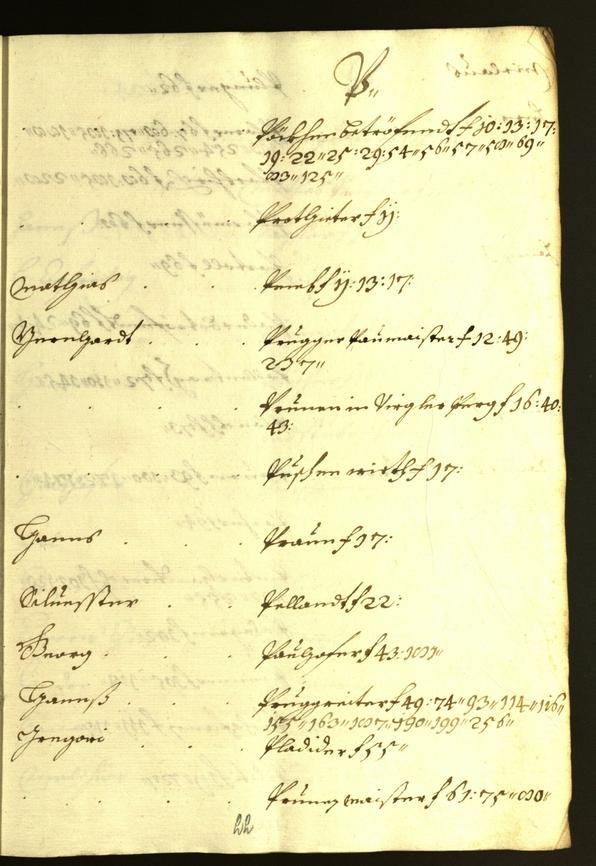 P„
Pöckhen betröfend f 10: 13: 17:
19: 22„ 25: 29: 54„ 56„ 57„ 58„ 69„
83„ 125„
Prothieter f 11:
Mathias . . f 11: 13: 17:
Bernhardt . . Prugger Paumaister f 12: 49:
237„
. . . Prunen in Virgler Perg f 16: 40:
43:
. . . Puschen wirth f 17:
Hanns . . . Praun f 17:
Siluesster . . Pellandt f 22:
Georg . . Paulhofer f 43: 181„
Hannß . . . Pruggreiter f 49: 74„ 93„ 114„ 116„
155„ 163„ 187„ 190„ 199„ 256„
Gregori . . . Pladider f 55„
. . . Prunenmaister f 61: 75„ 80„
22